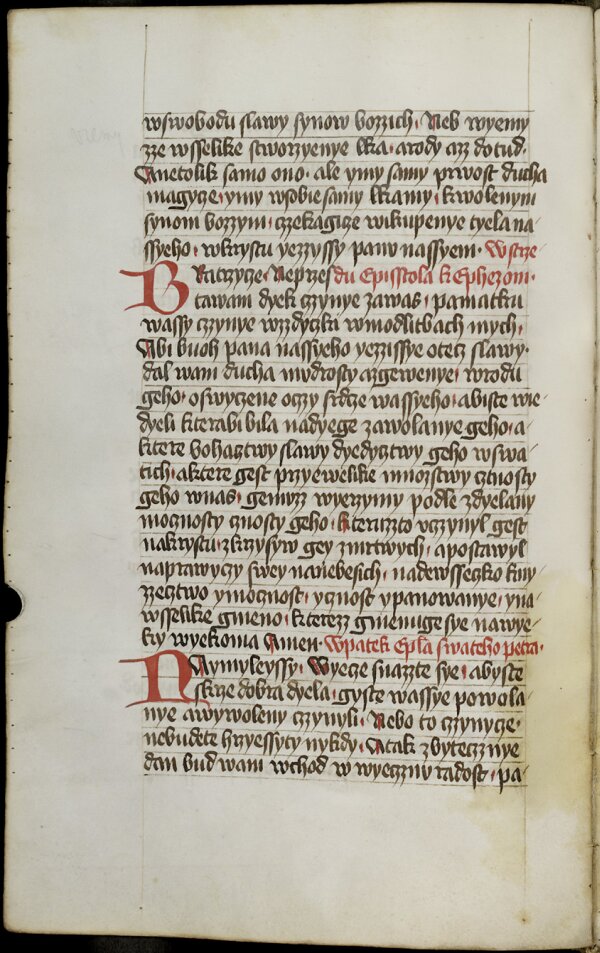 wswobodu slawy synow bozzich. Neb wyemy
zze wsselike stworzyenye lka. arody azz dotud.
Anetolik samo ono. ale ymy samy prwost ducha
magyze. ymy wsobie samy lkamy. kwolenym
synom bozzym. czekagicze wikupenye tyela na
ssyeho. wkrystu yezzyssy panw nassyem. Wstrze
Bratrzyze. Neprzes du Episstola k Ephezom.
tawam dyek czynye zawas. pamatku
wassy czynye wzzdyczka wmodlitbach mych.
Abi buoh pana nassyeho yezzissye otecz slawy.
dal wam ducha mudrosty azgewenye. wrodu
geho. oswyczene oczy srdze wassyeho. abiste wie
dyeli kterabi bila nadyege zawolanye geho. a
ktere bohacztwy slawy dyedycztwy geho wswa
tich. aktere gest przyewelike mnozstwy cztnosty
geho wnas. gemuzz wyerzymy podle zdyelany
mocznosty cznosty geho. kteruzzto vczynyl gest
nakrystu. zkrzysyw gey zmrtwych. apostawyl
naprawyczy swey nanebesich. nadewsseczko kny
zzecztwo ymocznost. ycznost ypanowanye. yna
wsselike gmeno. kterezz gmenuge sye nawye
ky wyekoma Amen. Wpatek Epla swateho petra.
Naymyleyssy. Wyecze snazzte sye. abyste
skrze dobra dyela. gyste wassye powola
nye awywoleny czynyli. Nebo to czynycze.
nebudete hrzyessyty nykdy. Atak zbytecznye
dan bud wam wchod w wyeczny radost. pa